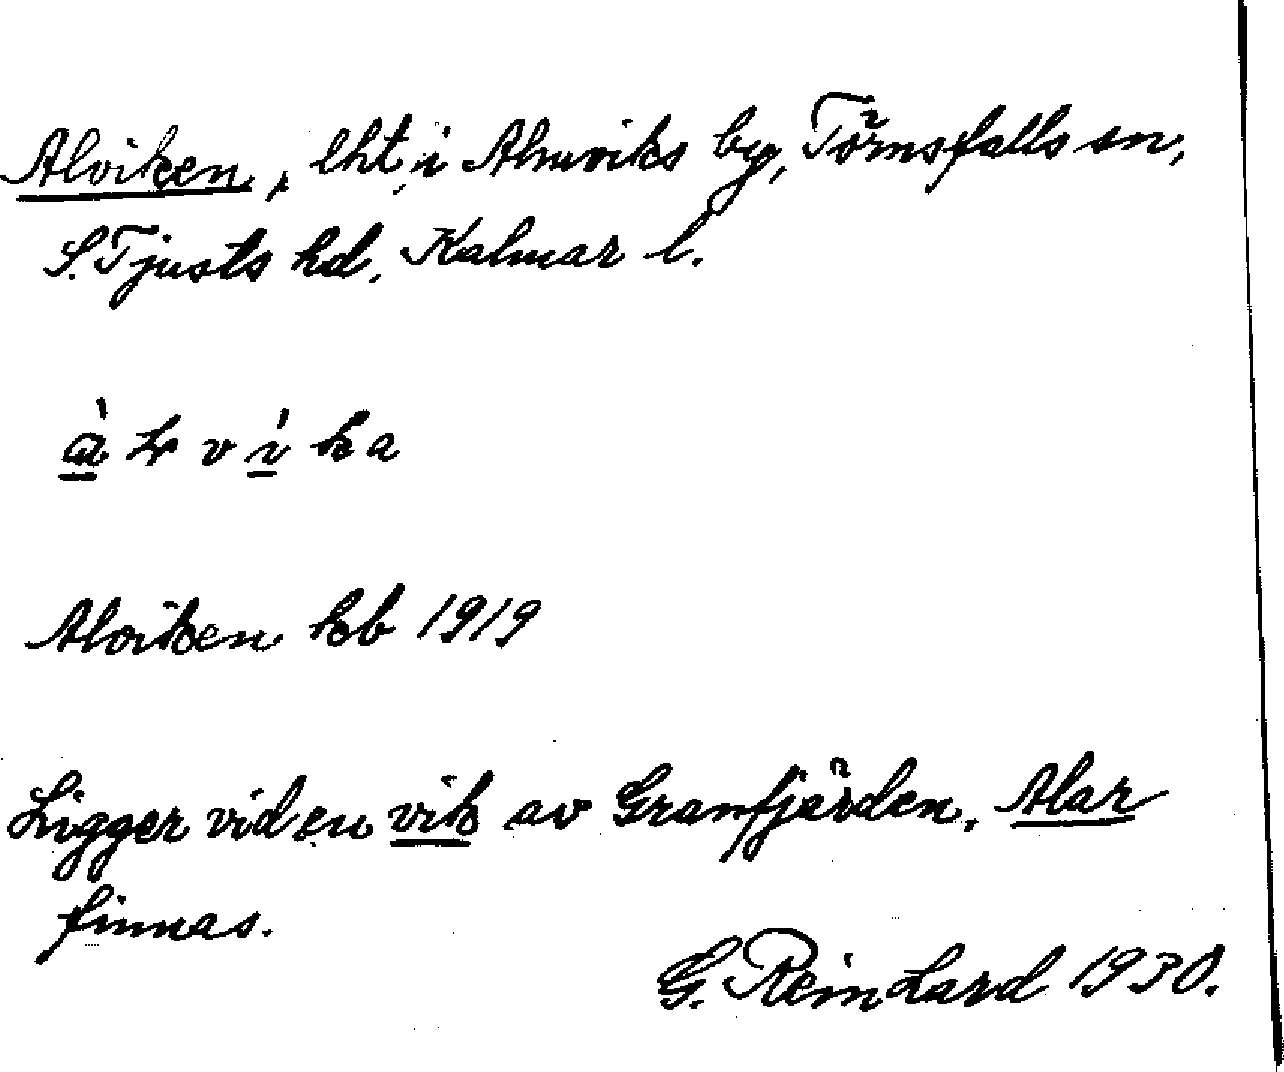 Alviken, lht, i Almviks by, Törnsfalls sn,
S. Tjusts hd, Kalmar l.
Alviken kb 1919
Ligger vid en vik av Granfjärden. Alar
finnas.
G. Reinhard 1930.